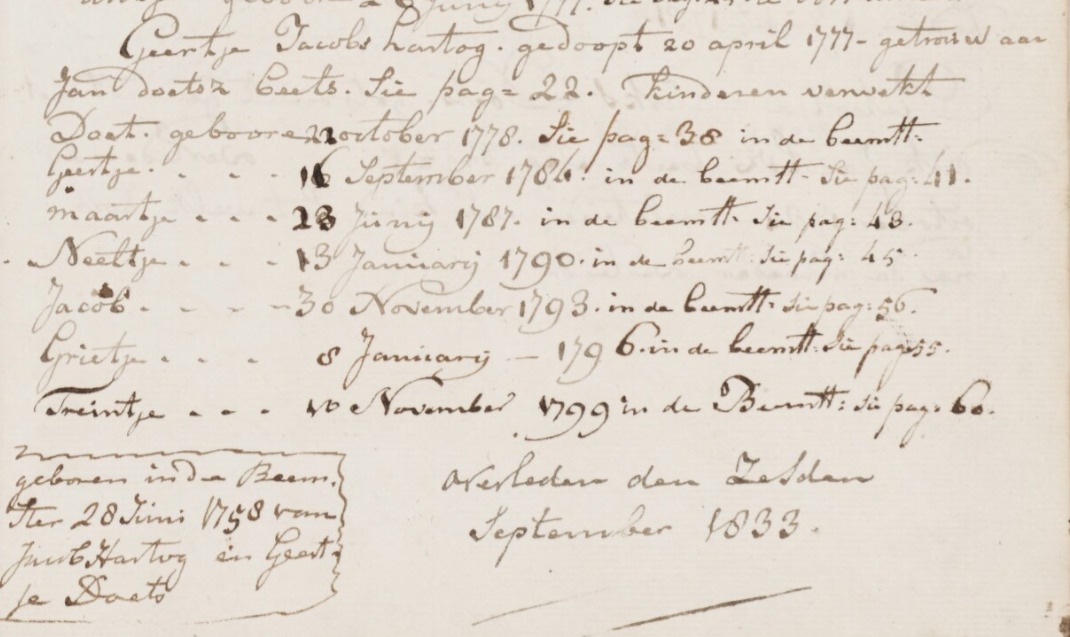 geboore 8 Junij 1777.
Geertje Jacobs hartog. gedoopt 20 april 1777 - getrouwd aan
Jan doetsz beets. Sie pag= 22. Kinderen verwekt
Doet. geboore 22 october 1778. Sie pag= 38 in de beemtt=
Geertje. - - - 16 September 1784. in de beemtt= Sie pag= 41.
maartje - - - 23 Junij 1787. in de beemtt= Sie pag= 43.
Neeltje - - - 13 Januarij 1790. in de beemtt= Sie pag= 45.
Jacob - - - - 30 November 1793. in de beemtt= Sie pag= 56.
Grietje - - - 8 Januarij - 1796. in de beemtt= Sie pag= 55.
Treintje - - - 10 November 1799 in de Beemtt= Sie pag= 60.
geboren in de Beem-
ster 28 Juni 1758 van
Jacob Hartog en Geert-
je Doets
overleden den Zesden
September 1833.